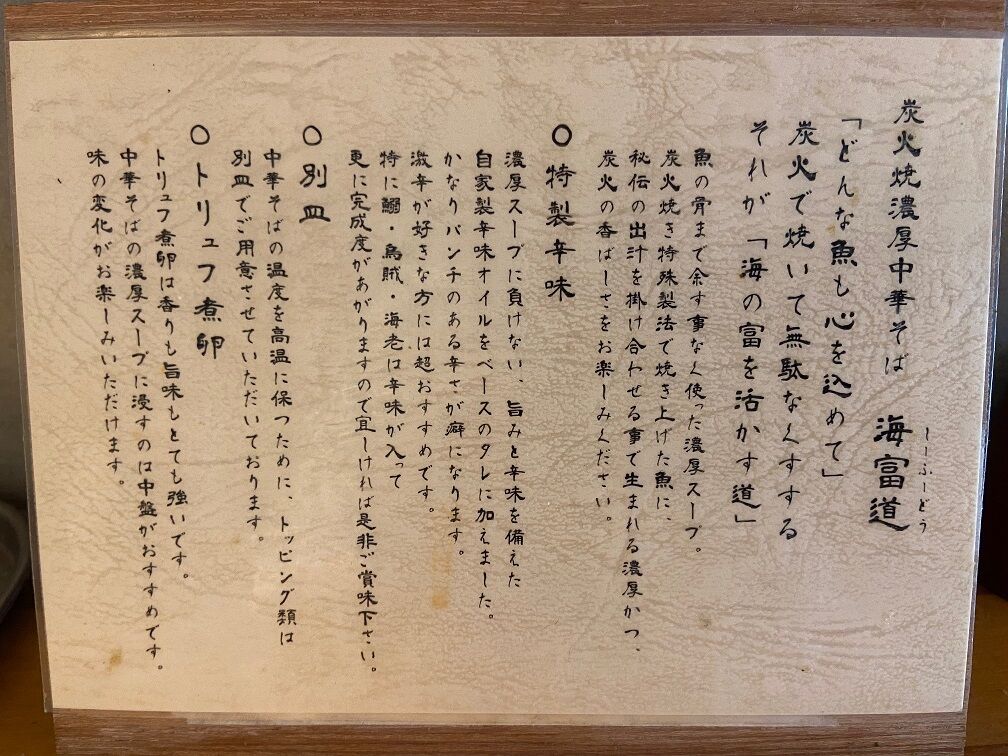 炭火焼濃厚中華そば 海富道
しーふーどう
「どんな魚も心を込めて」
炭火で焼いて無駄なくする
それが「海の富を活かす道」
魚の骨まで余す事なく使った濃厚スープ。
炭火焼き特殊製法で焼き上げた魚に、
秘伝の出汁を掛け合わせる事で生まれる濃厚かつ、
炭火の香ばしさをお楽しみください。
○特製辛味
濃厚スープに負けない、旨みと辛味を備えた
自家製辛味オイルをベースのタレに加えました。
かなりパンチのある辛さが癖になります。
激辛が好きな方には超おすすめです。
特に鰯・烏賊・海老は辛味が入って
更に完成度があがりますので宜しければ是非ご賞味下さい。
○別皿
中華そばの温度を高温に保つために、トッピング類は
別皿でご用意させていただいております。
○トリュフ煮卵
トリュフ煮卵は香りも旨味もとても強いです。
中華そばの濃厚スープに浸すのは中盤がおすすめです。
味の変化がお楽しみいただけます。